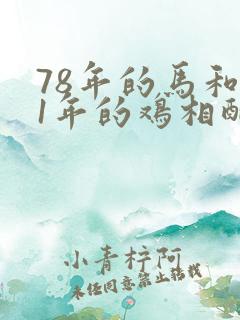 78年的馬和
1年的鸡相
小青梓阿
未经同意禁止转载